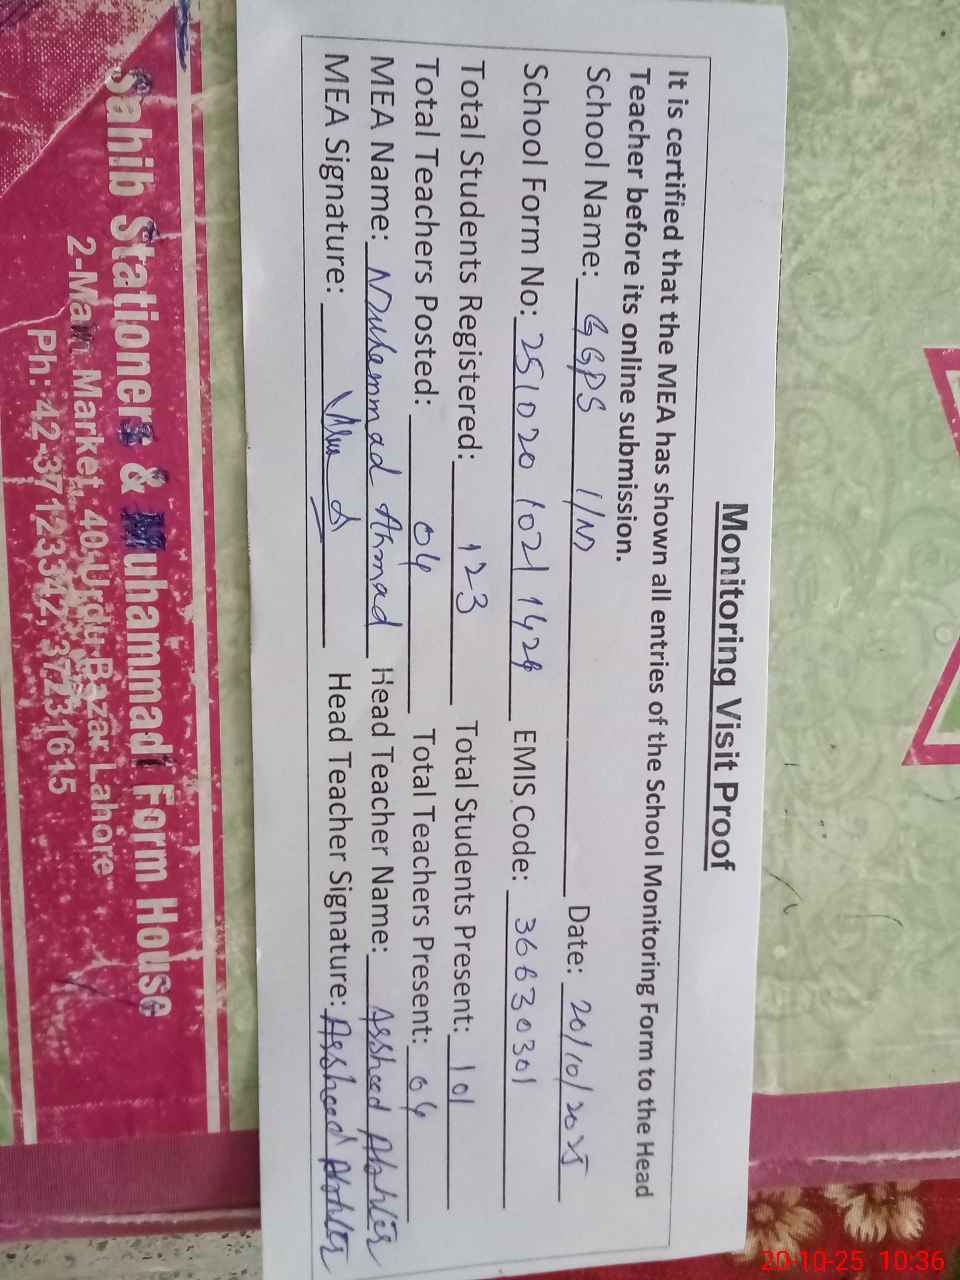 Monitoring Visit Proof
It is certified that the MEA has shown all entries of the School Monitoring Form to the Head
Teacher before its online submission.
School Name: GGPS 1/ Date: 20/10/2025
School Form No: 251020 1021 1424 EMIS Code: 36630301
Total Students Registered: 123 Total Students Present: 101
Total Teachers Posted: 04 Total Teachers Present: 04
MEA Name: Muhammad Ahmad Head Teacher Name:
MEA Signature: Head Teacher Signature:
Sahib Stationers & Muhammadi Form House
2-Main Market, 40-Urdu Bazar Lahore
Ph: 42-37123342, 37231615
20-10-25 10:36